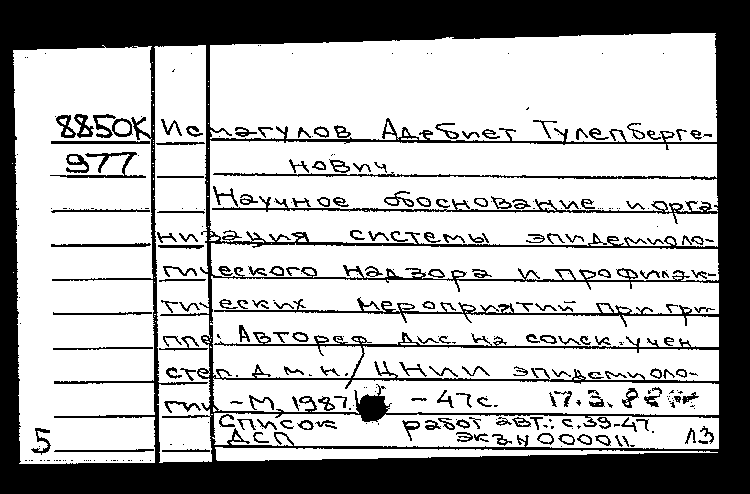 8850К Исмагулов Адебиет Тулепберге-
977 нович
Научное обоснование и орга-
низация системы эпидемиоло-
гического надзора и профилак-
тических мероприятий при грип-
пе: Автореф дис. на соиск. учен
степ. д. м. н. / ЦНИИ эпидемиоло-
гии - М, 1987. - 47 с. 17.3.88
Список работ авт.: с. 39-47.
5 ДСП экз. N 000011. ЛЗ